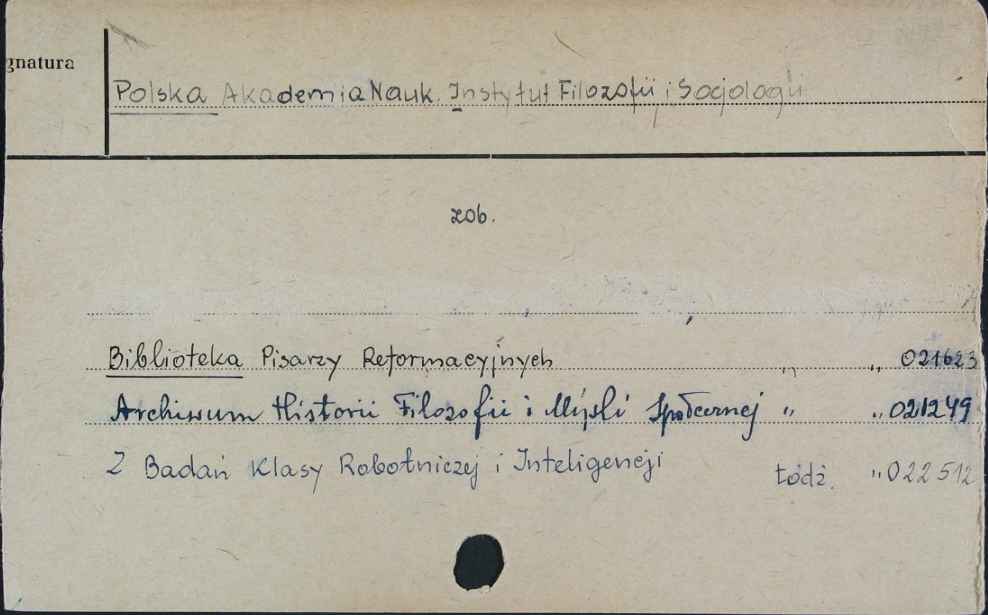 gnatura
Polska Akademia Nauk. Instytut Filozofii i Socjologii
zob.
Biblioteka Pisarzy Reformacyjnych " " 021623
Archiwum Historii Filozofii i Myśli Społecznej " " 021249
Z Badań Klasy Robotniczej i Inteligencji Łódź. " 022512